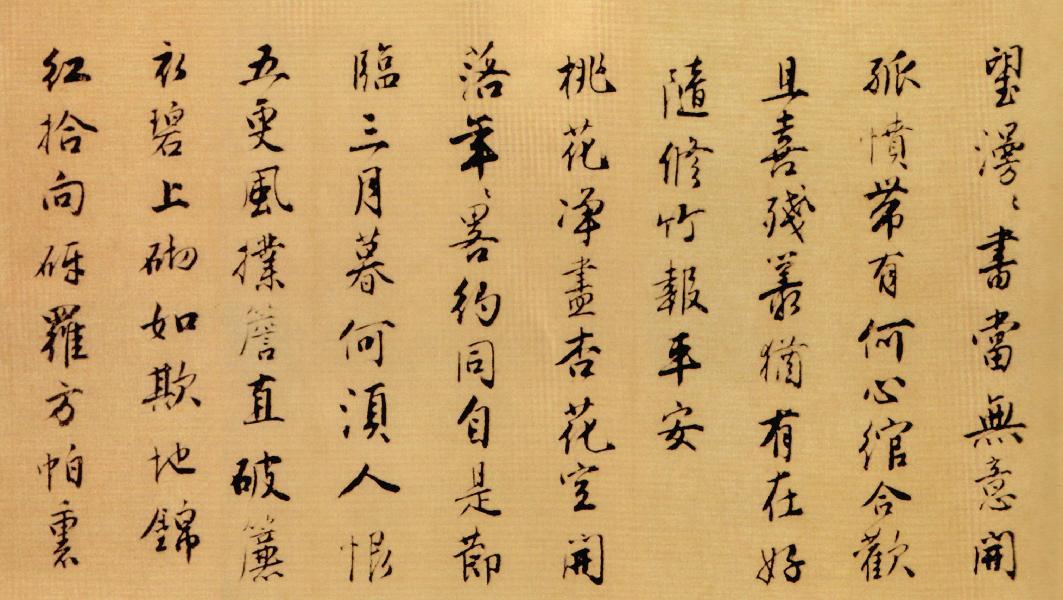 望漫〻書當無意開
孤憤帶有何心綰合歡
且喜殘叢猶有在好
隨修竹報平安
桃花淨盡杏花空開
落年〻畧約同自是節
臨三月暮何須人恨
五更風撲簷直破簾
衣碧上砌如欺地錦
紅拾向砑羅方帕裏